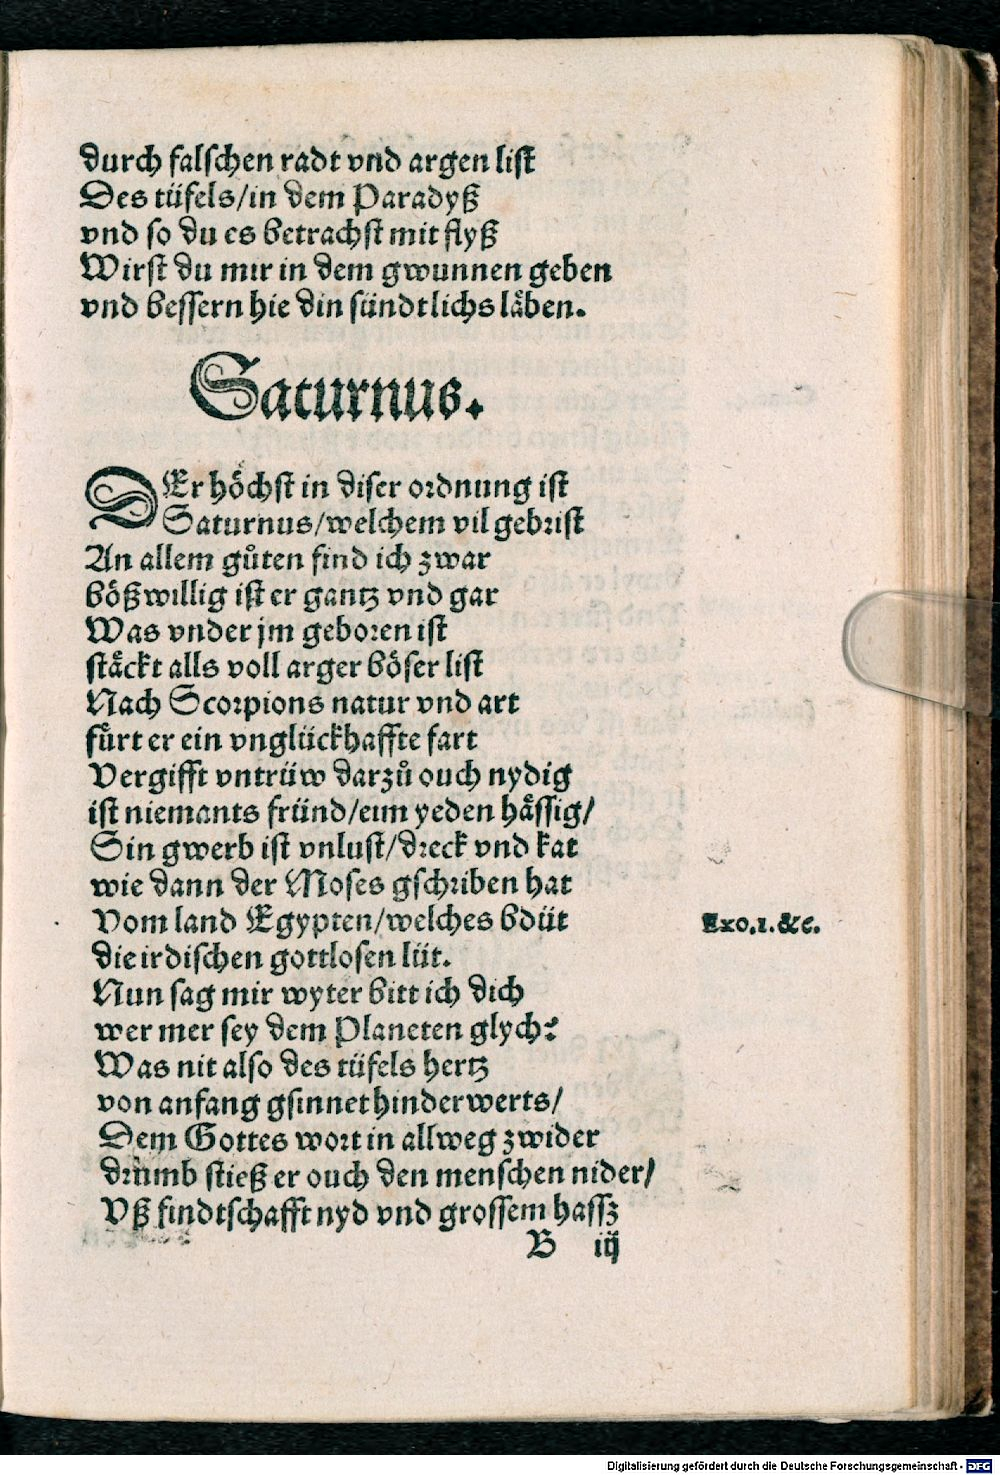 durch falschen radt vnd argen list
Des tüfels/in dem Paradyß
vnd so du es betrachst mit flyß
Wirst du mir in dem gwunnen geben
vnd bessern hie din sündtlichs läben.
Saturnus.
DEr höchst in diser ordnung ist
Saturnus/welchem vil gebrist
An allem gůten find ich zwar
bößwillig ist er gantz vnd gar
Was vnder jm geboren ist
stäckt alls voll arger böser list
Nach Scorpions natur vnd art
fürt er ein vnglückhaffte fart
Vergifft vntrüw darzů ouch nydig
ist niemants fründ/eim yeden hässig/
Sin gwerb ist vnlust/dreck vnd kat
wie dann der Moses gschriben hat
Vom land Egypten/welches bdüt
Exo.1.&c.
die irdischen gottlosen lüt.
Nun sag mir wyter bitt ich dich
wer mer sey dem Planeten glych?
Was nit also des tüfels hertz
von anfang gsinnet hinderwerts/
Dem Gottes wort in allweg zwider
drumb stieß er ouch den menschen nider/
Vß findtschafft nyd vnd grossem hassz
B iij
Digitalisierung gefördert durch die Deutsche Forschungsgemeinschaft - DFG